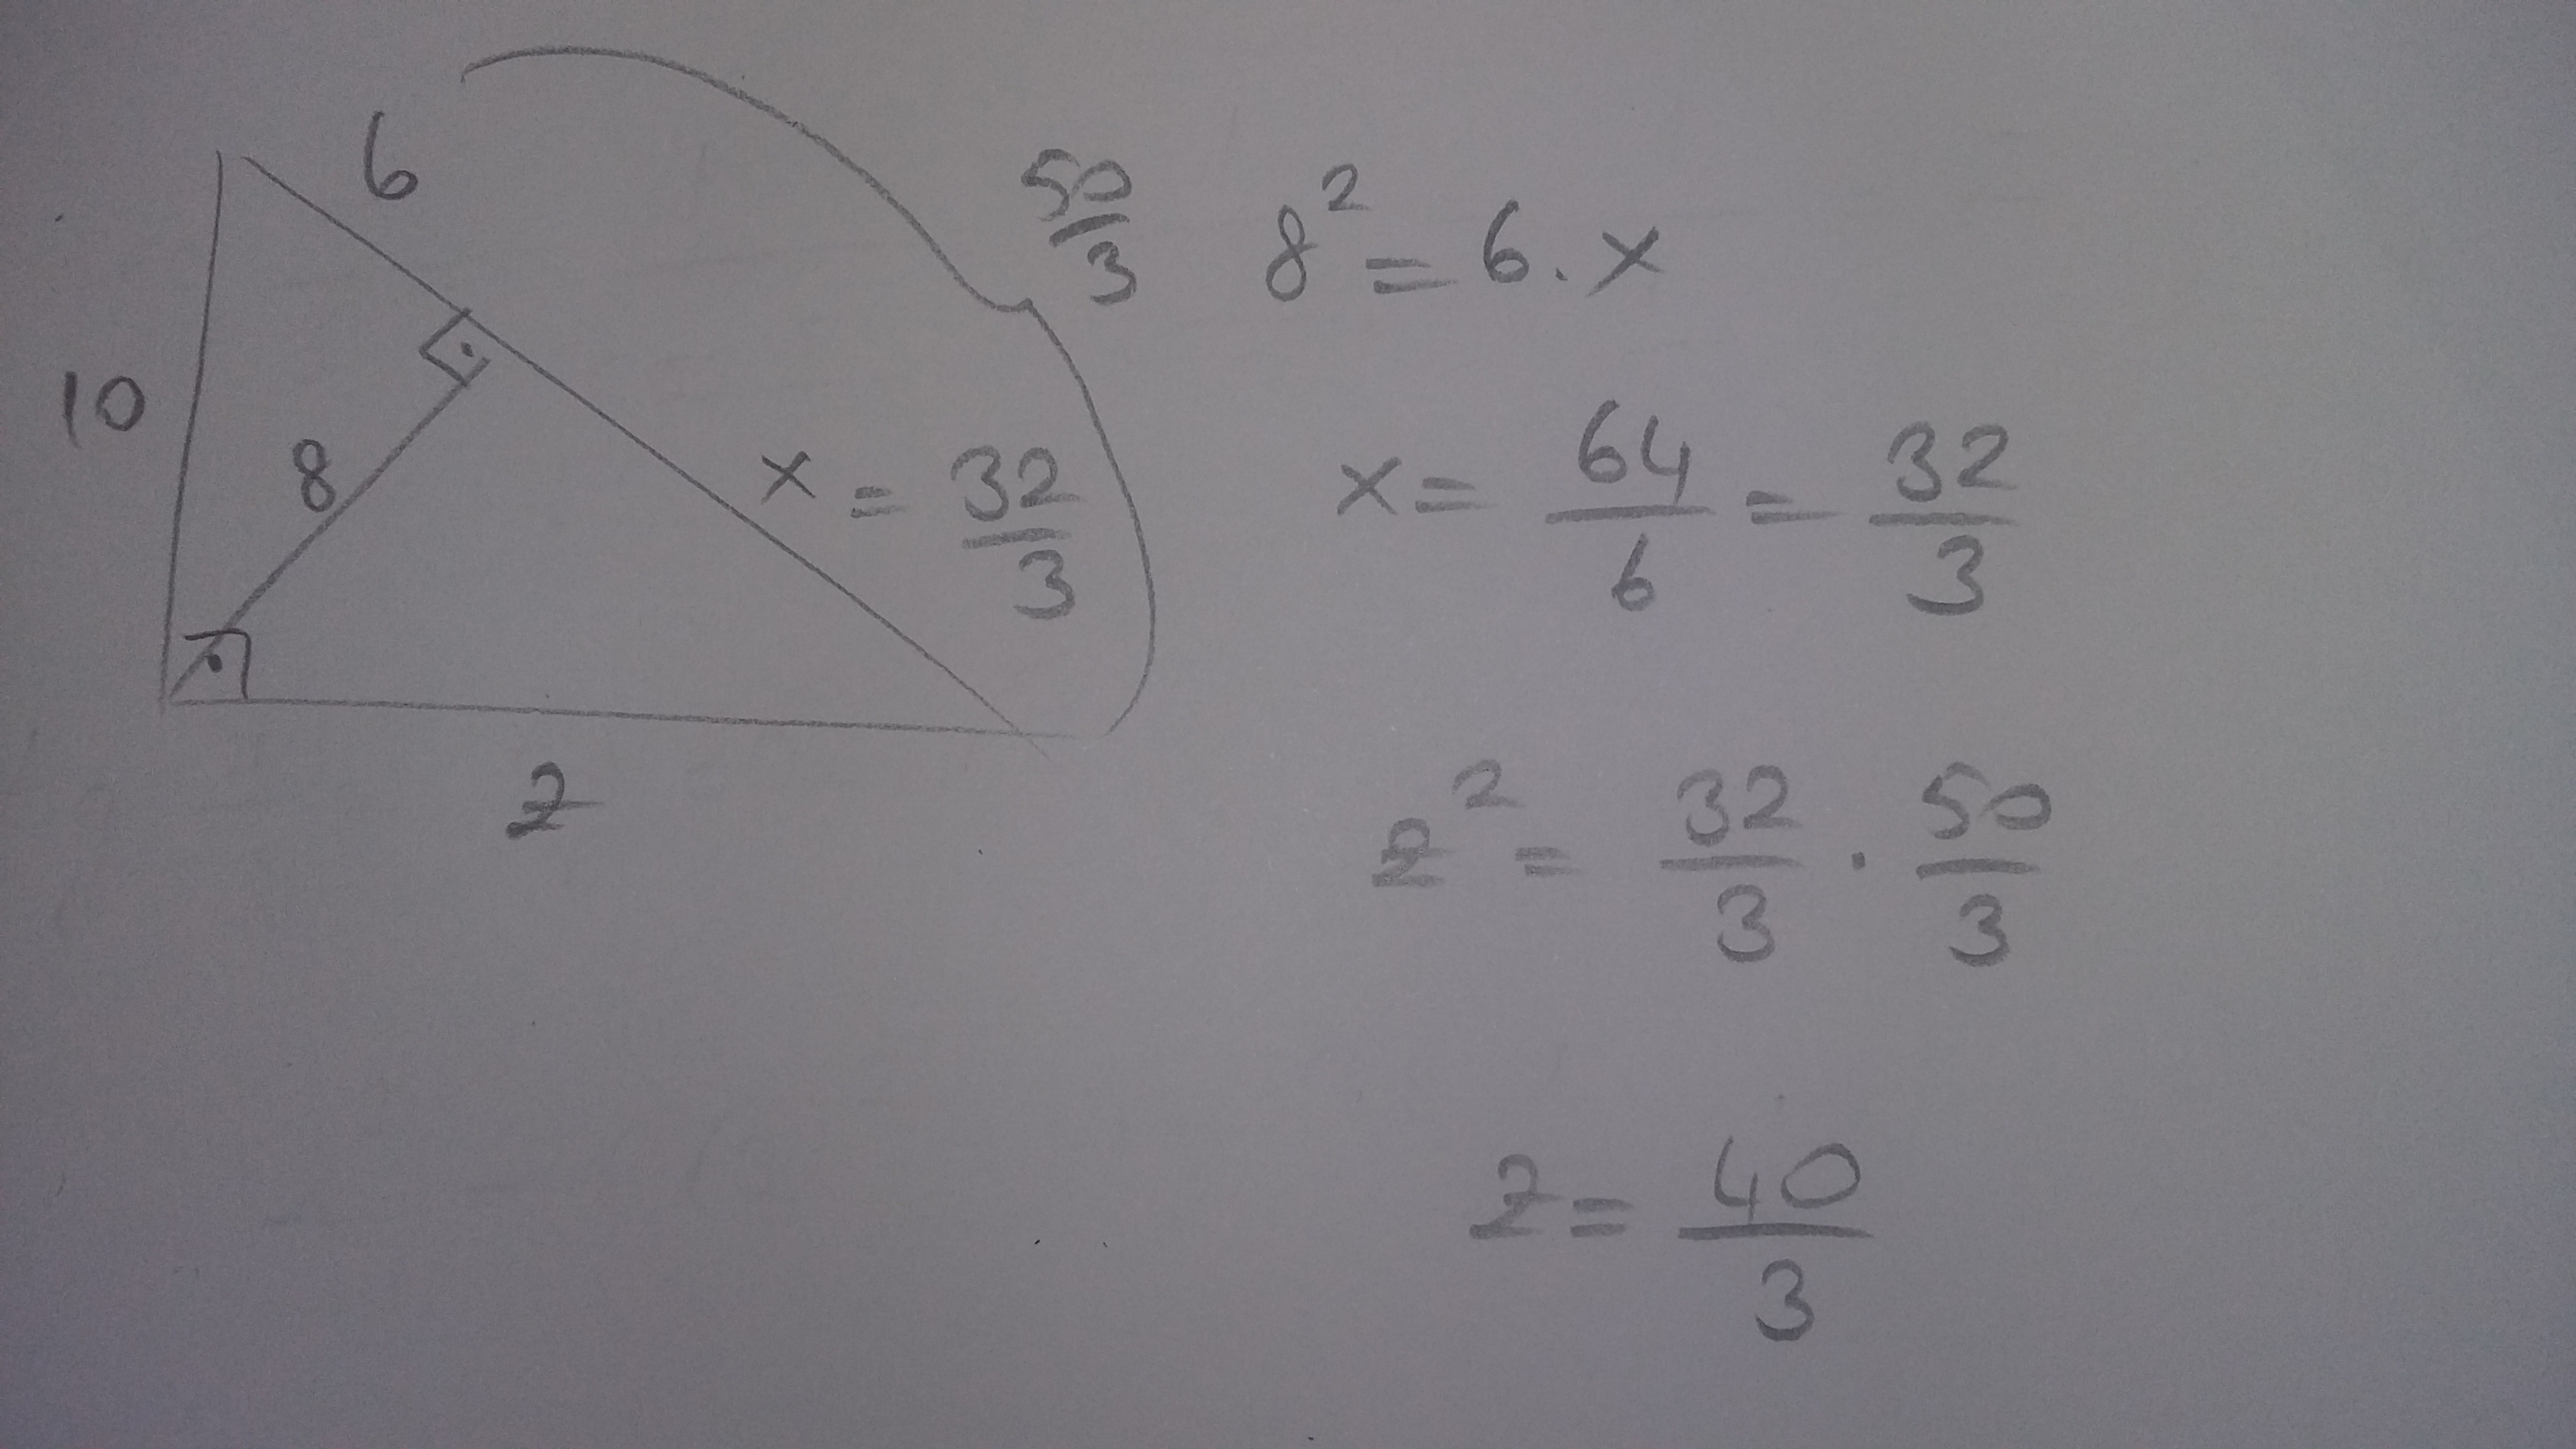 6
10
8
x = 32/3
50/3
z
8² = 6 . x
x = 64/6 = 32/3
z² = 32/3 . 50/3
z = 40/3